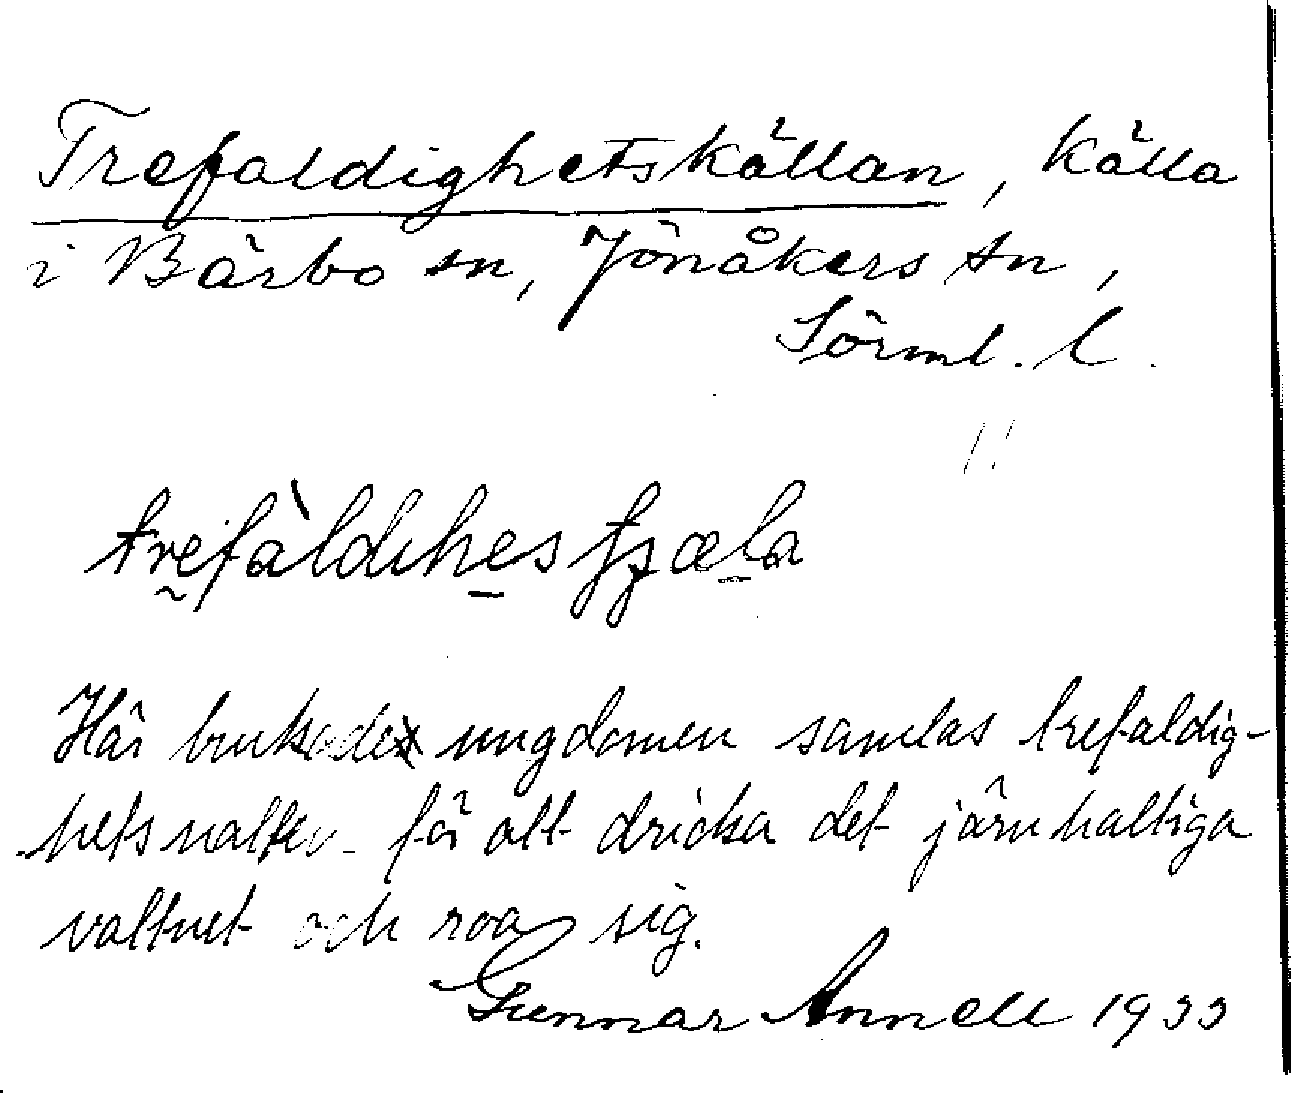 Trefaldighetskällan, källa
i Bärbo sn, Jönåkers hd,
Sörml. l.
trefàldihes
Här brukade ungdomen samlas trefaldig-
hetsnatten för att dricka det järnhaltiga
vattnet och roa sig.
Gunnar Annell 1933